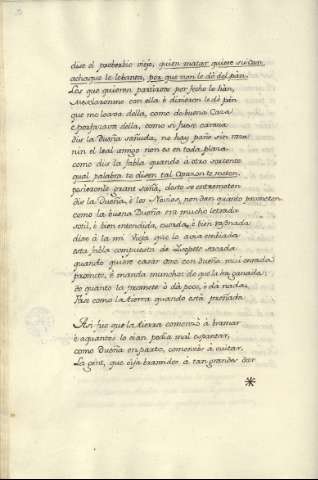 dise el proberbio viejo, quien matar quiere su can
achaque le lebanta, por que non le dé del pan.
Los que quieren partirnos por fecho le han,
Mesclaronme con ella è dixieron le dé plan
que me loava della, como de buena Caza
è porfazava della, como si fues caraza
dis la Dueña sañuda, no hay paño sin raza
nin el leal amigo non es en toda plaza.
como dis la fabla quando à otro someten
qual palabra te disen tal Corazon te meten.
posieronle grant saña, desto se entremeten
dis la Dueña, è los Novios, non dan quanto prometen
como la buena Dueña era mucho letrada
sotil, è bien entendida, cuerda, è bien mesurada
dixo à la mi Vieja que le avia embiada
esta fabla compuesta de Isopete sacada
quando quiere casar ome con dueña muy onrada
promete, è manda muncho: desque la ha ganada
de quanto la promete ò dà poco, è dà nada.
Fase como la tierra quando està preñada

Asi fue que la tierra comenzò à bramar
è aquantos la oian podia mal espantar,
como Dueña en parto, comenzòs à cuitar,
La gent, que oìa bramidos à tan grandes dar